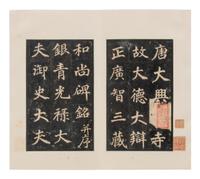 唐大興善寺
故大德大辯
正廣智三藏
和尚碑銘并序
銀青光祿大
夫御史大夫